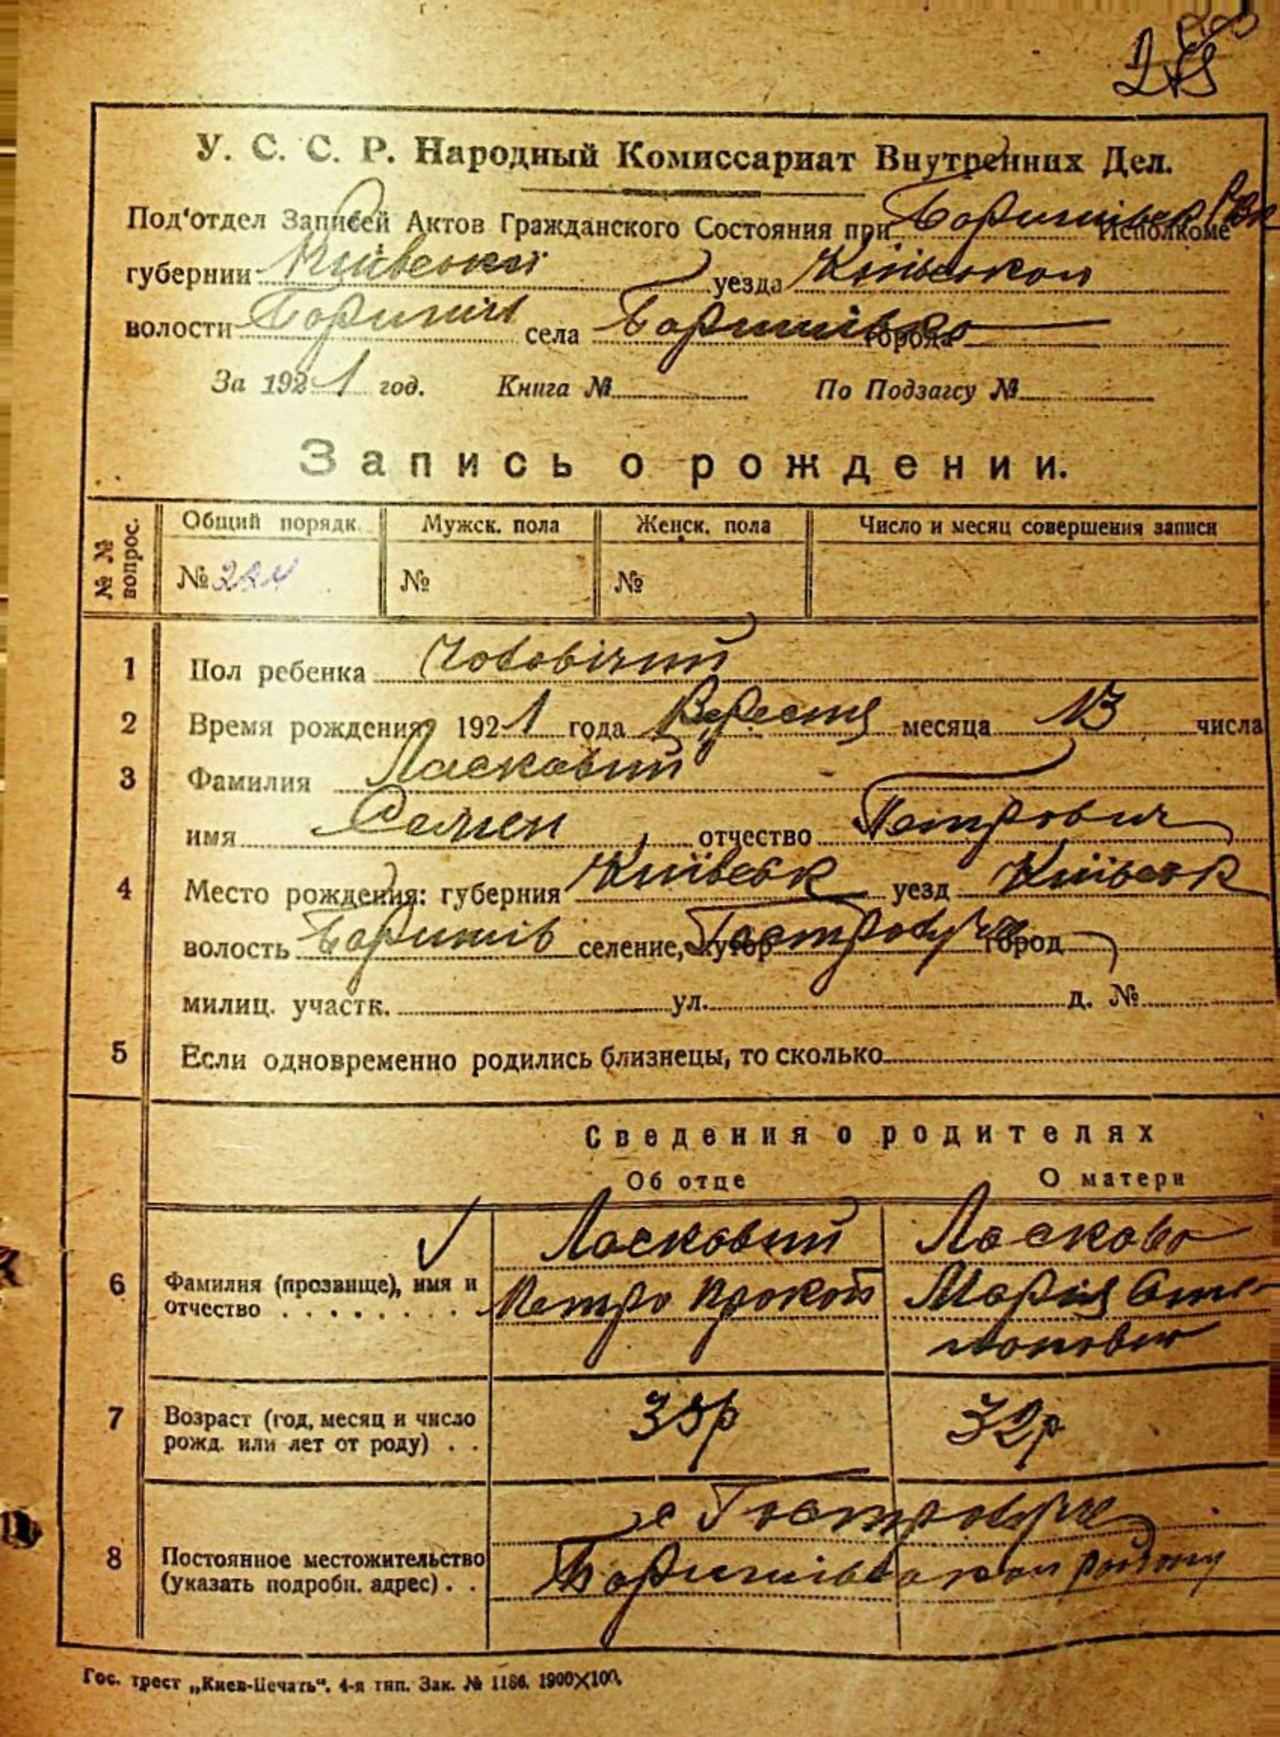 У. С. С. Р. Народный Комиссариат Внутренних Дел.
Под'отдел Записей Актов Гражданского Состояния при Исполкоме
губернии Київської уезда Київського
волости села Баришівка города
За 1921 год. Книга № По Подзагсу №
Запись о рождении.
№ № вопрос. Общий порядк. Мужск. пола Женск. пола Число и месяц совершения записи
№ 224 № №
1 Пол ребенка Чоловічий
2 Время рождения: 1921 года Вересня месяца 13 числа
3 Фамилия Ласковий
имя Семен отчество Петрович
4 Место рождения: губерния Київськ уезд Київськ
волость Баришів селение, хутор город
милиц. участк. ул. д. №
5 Если одновременно родились близнецы, то сколько
Сведения о родителях
Об отце О матери
Ласковий Ласкова
6 Фамилия (прозвище), имя и отчество . . . . . . . . Петро Прокоп Марія
7 Возраст (год, месяц и число рожд. или лет от роду) . . 32р
с
8 Постоянное местожительство (указать подробн. адрес) . . Баришівського району
Гос. трест „Киев-Печать“. 4-я тип. Зак. № 1186. 1900×100.